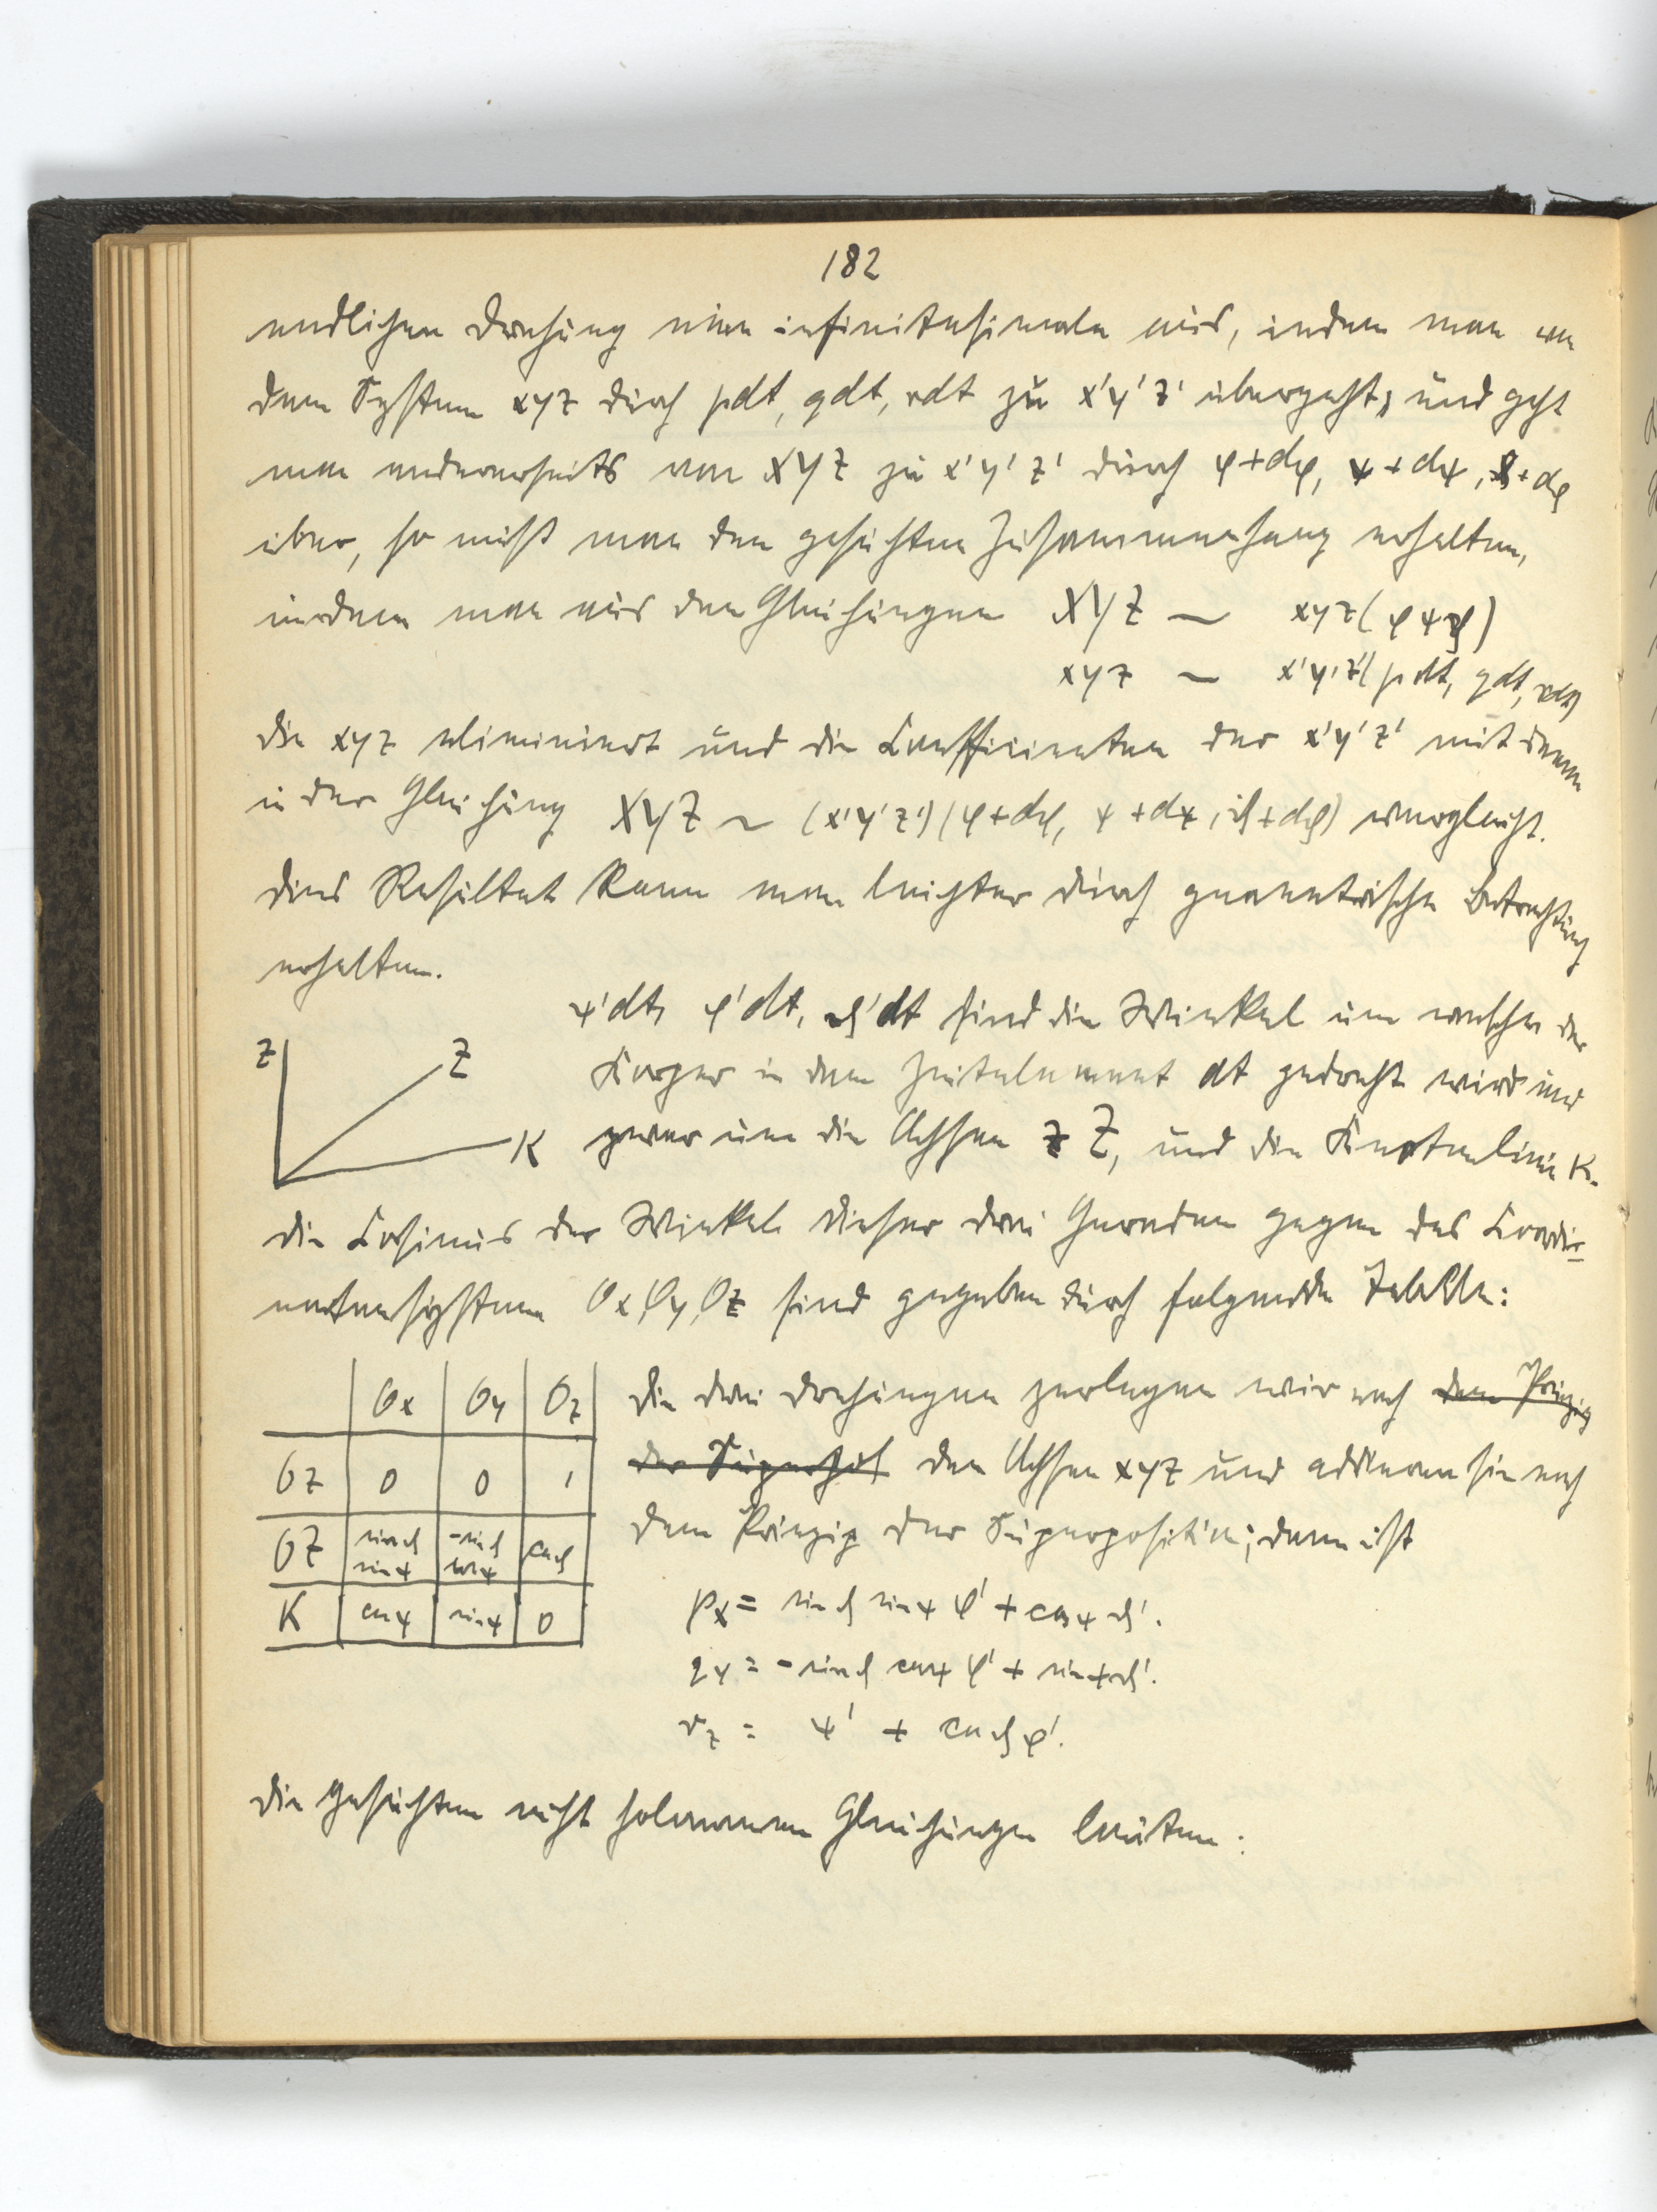 182
endlichen Drehung eine infinitesimale aus, indem man von
dem System xyz durch pdt, qdt, rdt zu x'y'z' übergeht; und geht
man andererseits von XYZ zu x'y'z' durch φ+dφ, ψ+dψ, ϑ+dϑ
über, so muß man den gesuchten Zusammenhang erhalten,
indem man aus den Gleichungen XYZ ~ xyz(φψϑ)
xyz ~ x'y'z'(pdt, qdt, rdt)
die xyz eliminiert und die Coefficienten der x'y'z' mit denen
in der Gleichung XYZ ~ (x'y'z')(φ+dφ, ψ+dψ, ϑ+dϑ) vergleicht.
Dies Resultat kann man leichter durch geometrische Betrachtung
erhalten.
ψ'dt, φ'dt, ϑ'dt sind die Winkel um welche der
Körper in dem Zeitelement dt gedreht wird und
z Z K
zwar um die Achsen z Z, und die Knotenlinie K.
Die Cosinus der Winkel dieser drei Geraden gegen das Coordi-
natensystem Ox, Oy, Oz sind gegeben durch folgende Tabelle:
Ox Oy Oz
Oz 0 0 1
OZ sinϑ sinψ -sinϑ cosψ cosϑ
K cosψ sinψ 0
Die drei Drehungen zerlegen wir nach dem Prinzip
der Superposit den Achsen xyz und addieren sie nach
dem Prinzip der Superposition; dann ist
px = sinϑ sinψ φ' + cosψ ϑ'.
qy = -sinϑ cosψ φ' + sinψ ϑ'.
rz = ψ' + cosϑ φ'.
Die gesuchten nicht holonomen Gleichungen lauten: